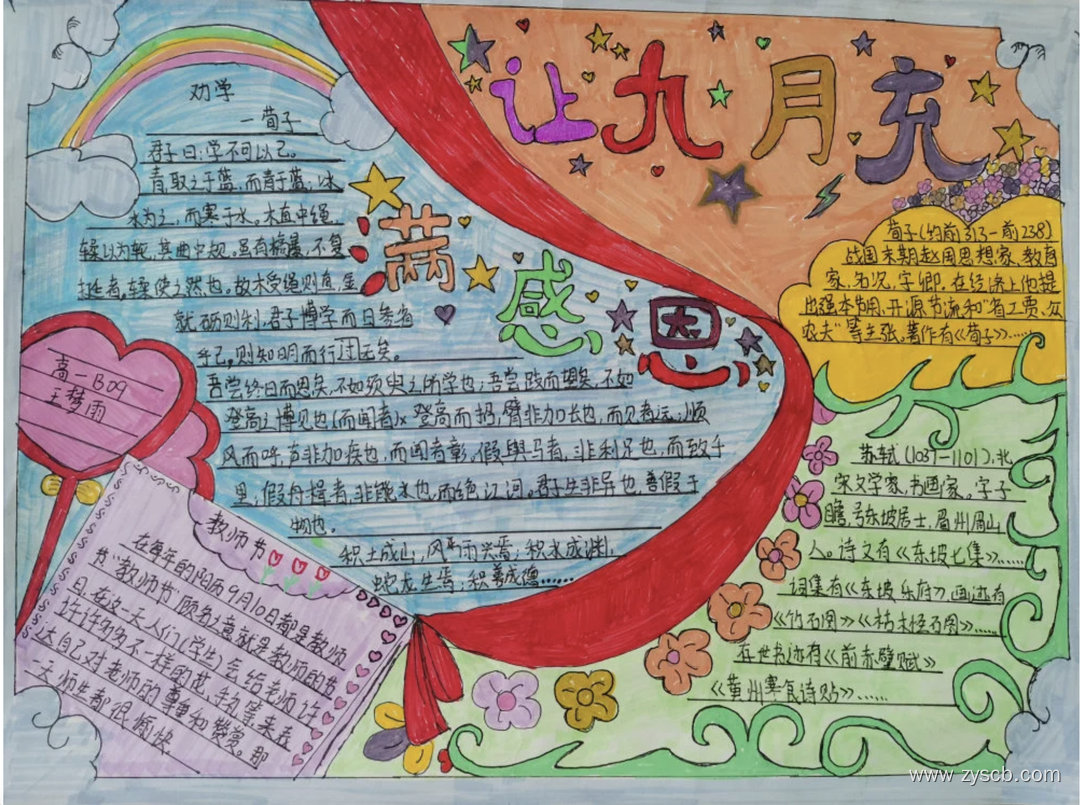 让九月充
满感恩
劝学
—荀子
君子曰:学不可以已。
青,取之于蓝,而青于蓝。冰
水为之,而寒于水。木直中绳,
輮以为轮,其曲中规。虽有槁暴,不复
挺者,輮使之然也。故木受绳则直,金
就砺则利,君子博学而日参省
乎己,则知明而行过无矣。
吾尝终日而思矣,不如须臾之所学也;吾尝跂而望矣,不如
登高之博见也(而闻者)x登高而招,臂非加长也,而见者远;顺
风而呼,声非加疾也,而闻者彰。假舆马者,非利足也,而致千
里;假舟楫者,非能水也,而绝江河。君子生非异也,善假于
物也。
积土成山,风雨兴焉;积水成渊,
蛟龙生焉;积善成德……
荀子(约前313-前238)
战国末期赵国思想家、教育
家,名况,字卿。在经济上他提
出强本节用、开源节流和“省工贾、众
农夫”等主张。著作有《荀子》……
苏轼(1037-1101),北
宋文学家,书画家。字子
瞻,号东坡居士,眉州眉山
人。诗文有《东坡七集》……
词集有《东坡乐府》,画迹有
《竹石图》《枯木怪石图》……
存世书迹有《前赤壁赋》
《黄州寒食诗帖》……
高一B09
王梦雨
教师节
在每年的阳历9月10日都是教师
节“教师节”顾名之意就是教师的节
日,在这一天人们(学生)会给老师许
许许多多不一样的花,手机等来表
达自己对老师的尊重和赞赏。那
一天师生都很愉快
www.zyscb.com